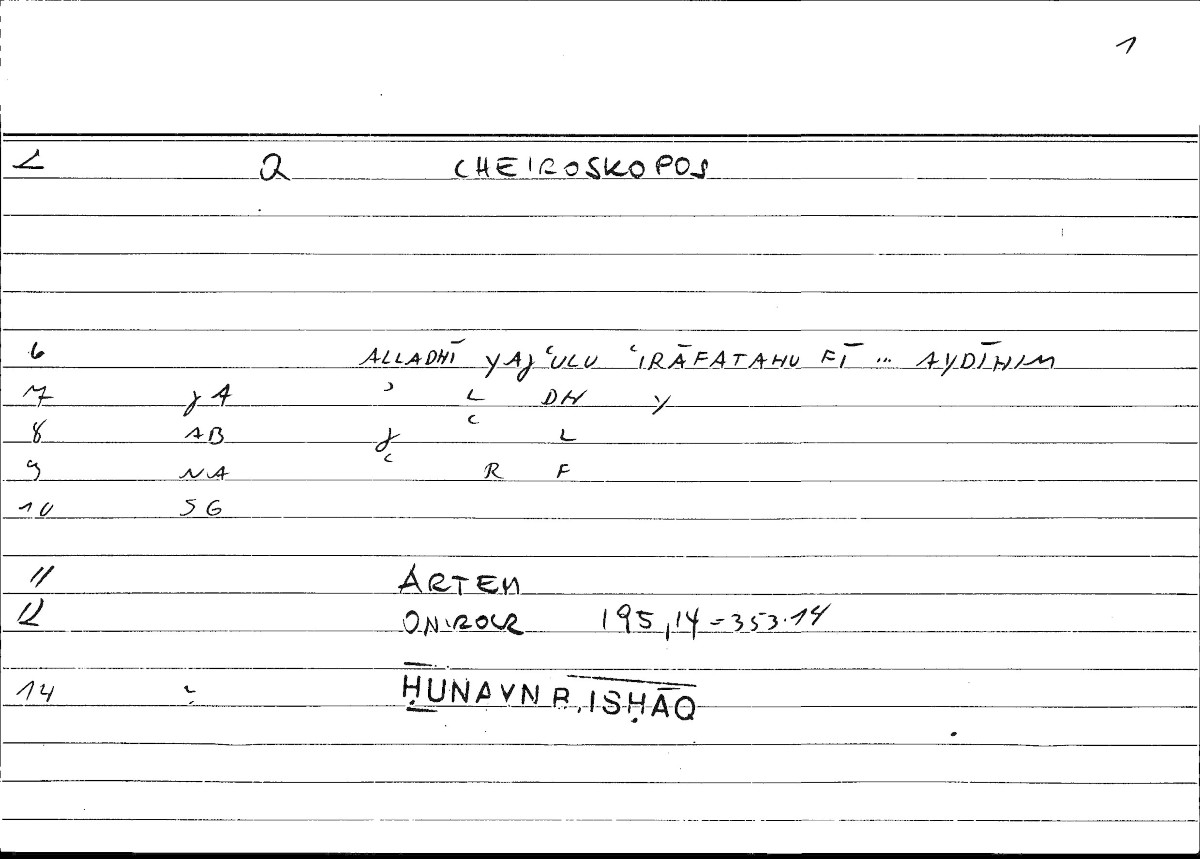 1
2 Q CHEIROSKOPOS
6 ALLADHĪ YAJʿULU ʿIRĀFATAHU FĪ ... AYDĪHIM
7 JA ʾ L DH Y
8 AB J ʿ L
9 NA ʿ R F
10 SG
11 ARTEM
12 ONIROCR 195,14 = 353.14
14 ḤUNAYN B. ISḤĀQ